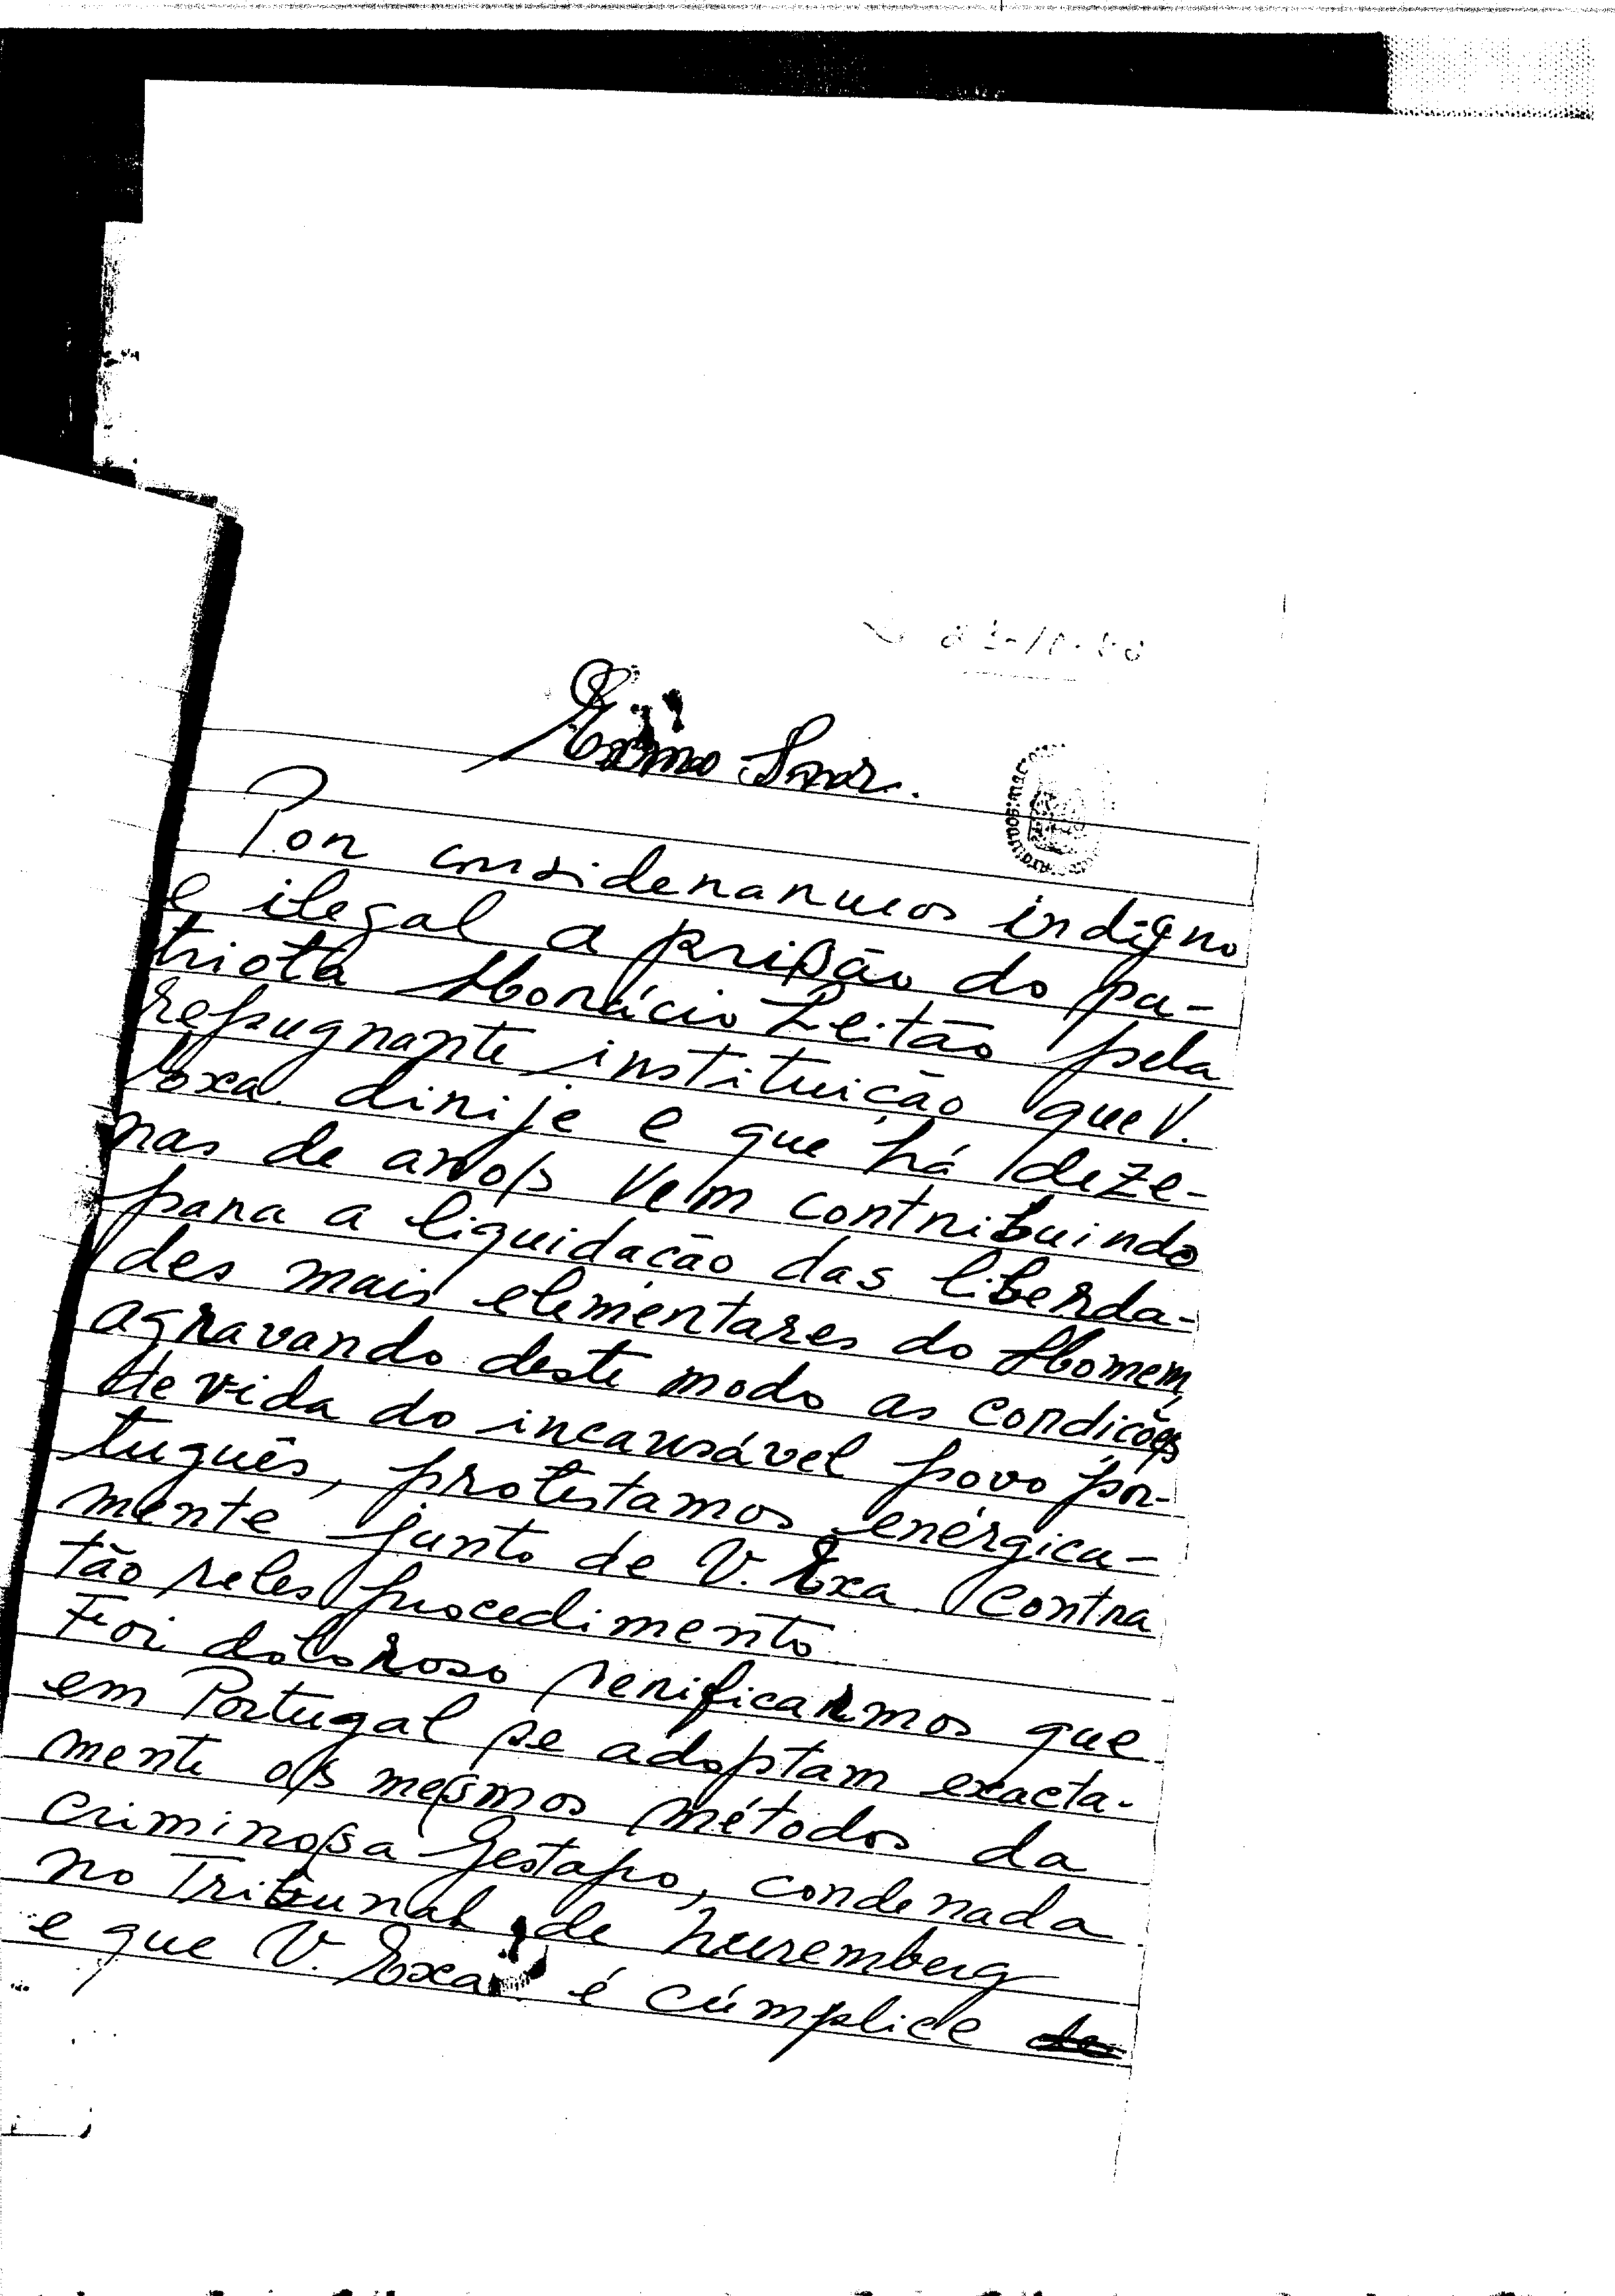 Exmo Snr.
Por considerarmos indigno
e ilegal a prisão do pa-
triota Horácio Leitão pela
repugnante instituição que V.
Exa. dirije e que há deze-
nas de anos vem contribuindo
para a liquidação das liberda-
des mais elementares do Homem,
agravando deste modo as condições
de vida do incansável povo por-
tuguês, protestamos energica-
mente junto de V. Exa. contra
tão reles procedimento.
Foi doloroso verificarmos que
em Portugal se adoptam exacta-
mente os mesmos métodos da
criminosa Gestapo, condenada
no Tribunal de Nuremberg
e que V. Exa. é cúmplice de